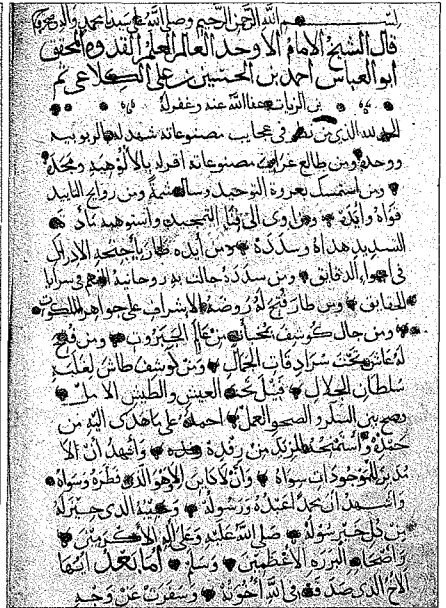 بسم الله الرحمن الرحيم وصلى الله على سيدنا محمد وآله
قال الشيخ الإمام الأوحد العالم العلم القدوة المحقق
أبو العباس أحمد بن الحسين بن علي الكلاعي ثم
بن الزيات عفا الله عنه وغفر له
الحمد لله الذي من نظر في عجايب مصنوعاته شهد له بالربوبية
ووحده ومن طالع غرايب مصنوعاته أقر له بالألوهية ومجده
ومن استمسك بعروة التوحيد ومن روايح التاييد
قواه وأيده ومن أوى إلى التمجيد واستوهب
التسديد هداه وسدده ومن أيده طار بأجنحة الإدراك
في الدقايق ومن سدده جالت به روحانية الفهم في
الحقايق ومن طار فتح له روضة الإشراف على جواهر الملكوت
ومن جال كوشف بمخبآت من عالم الجبروت ومن فتح
له عاش تحت سرادقات الجمال ومن كوشف طاش لغلبة
سلطان الجلال قبل تحت العيش والطيش الأمل
وصح بين السكر والصحو العمل أحمده على ما هدى إليه من
حمده وأستمنحه المزيد من رفده وأشهد أن لا
مدبر للموجودات سواه وأن لا كاين إلا هو الذي فطره وسواه
وأشهد أن محمدا عبده ورسوله الذي خير له
من كل خير سوله صلى الله عليه وعلى آله الأكرمين
وأصحابه البررة الأعظمين وسلم أما بعد أيها
الأخ الذي صدقت في الله أخوته وسفرت عن وجه